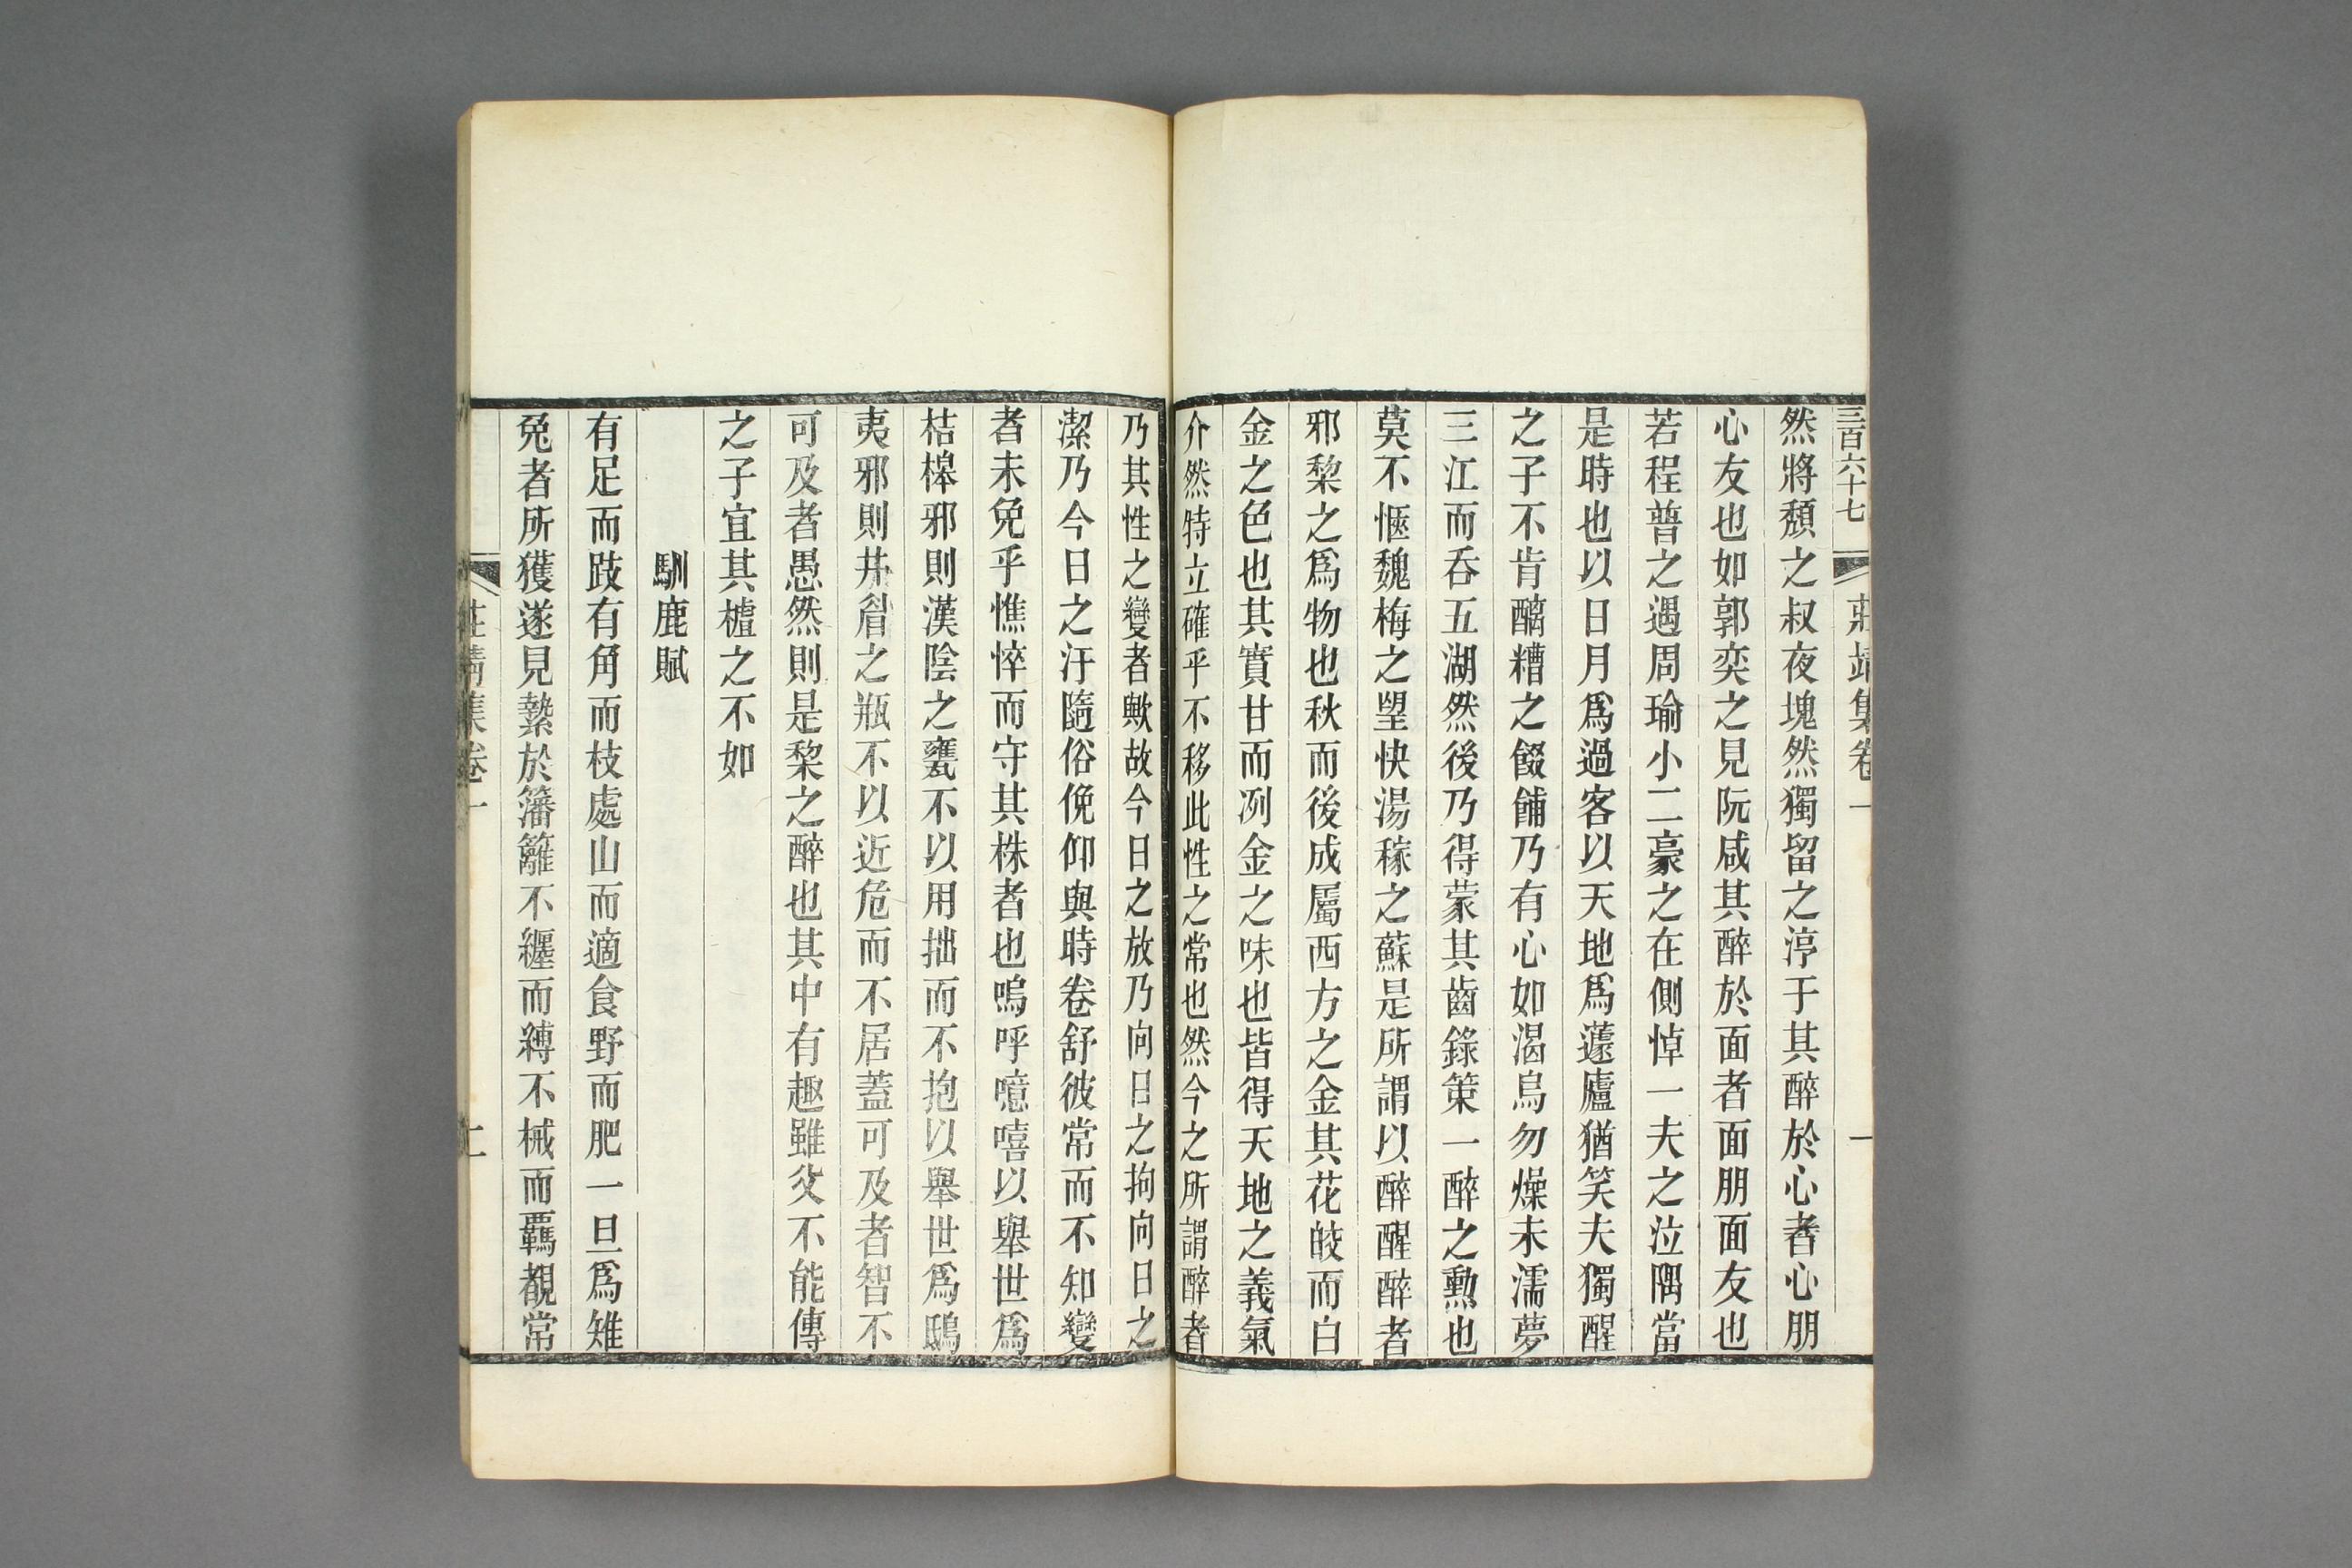 三百六十七 莊靖集卷一 一
然將頹之叔夜塊然獨留之淳于其醉於心者心朋
心友也如郭奕之見阮咸其醉於面者面朋面友也
若程普之遇周瑜小二豪之在側悼一夫之泣隅當
是時也以日月爲過客以天地爲蘧廬猶笑夫獨醒
之子不肯醨糟之餟餔乃有心如渴烏勿燥未濡夢
三江而吞五湖然後乃得蒙其齒錄策一醉之勲也
莫不愜魏梅之望快湯稼之蘇是所謂以醉醒醉者
邪棃之爲物也秋而後成屬西方之金其花皎而白
金之色也其實甘而冽金之味也皆得天地之義氣
介然特立確乎不移此性之常也然今之所謂醉者
乃其性之變者歟故今日之放乃向日之拘向日之
潔乃今日之汙隨俗俛仰與時卷舒彼常而不知變
者未免乎憔悴而守其株者也嗚呼噫嘻以舉世爲
桔槹邪則漢陰之甕不以用拙而不抱以舉世爲鴟
夷邪則井眉之瓶不以近危而不居蓋可及者智不
可及者愚然則是棃之醉也其中有趣雖父不能傳
之子宜其樝之不如
馴鹿賦
有足而跂有角而枝處山而適食野而肥一旦爲雉
兔者所獲遂見縶於籓籬不纒而縛不械而羈覩常
莊靖集卷一